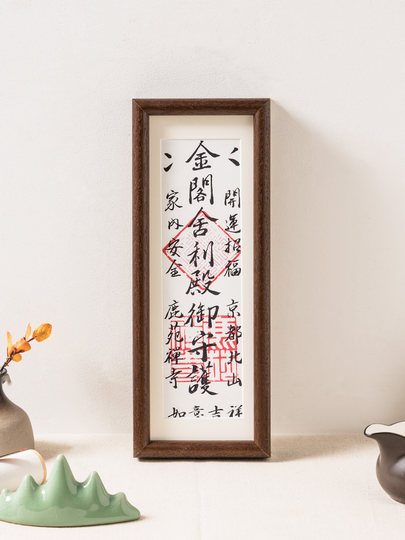 金閣舍利殿御守護
開運招福 京都北山
家内安全 鹿苑禅寺
如意吉祥